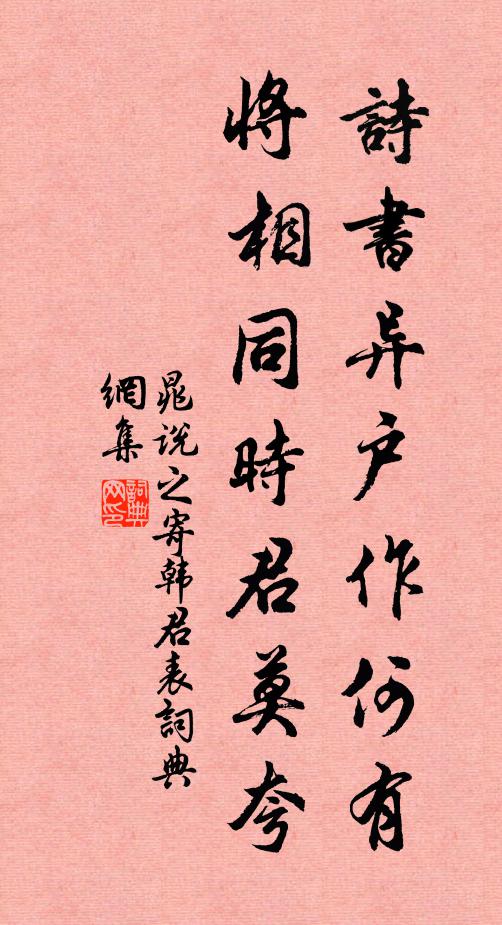 詩書异户作何有
將相同時君莫夸
晁説之寄韩君表詞典
網集
詞典
网印